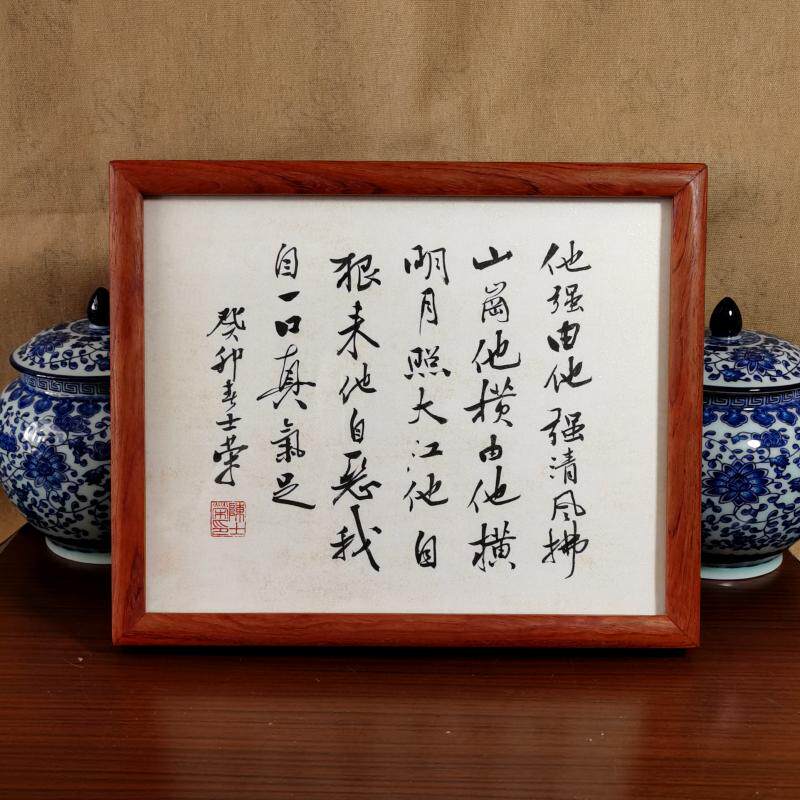 他强由他强清风拂
山崗他横由他横
明月照大江他自
狠来他自惡我
自一口真氣足
癸卯春士榮
陳士榮印